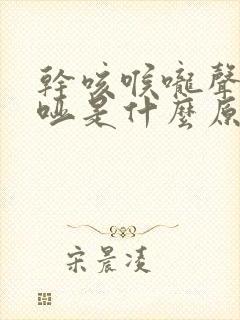 幹咳喉嚨聲
啞是什麼原
宋晨凌